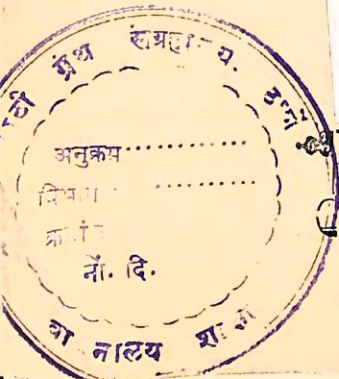 ग्रंथ संग्रहा य. ठाणें
अनुक्रम ..................
विभाग ..................
क्रमांक
नों. दि.
वा नालय शा